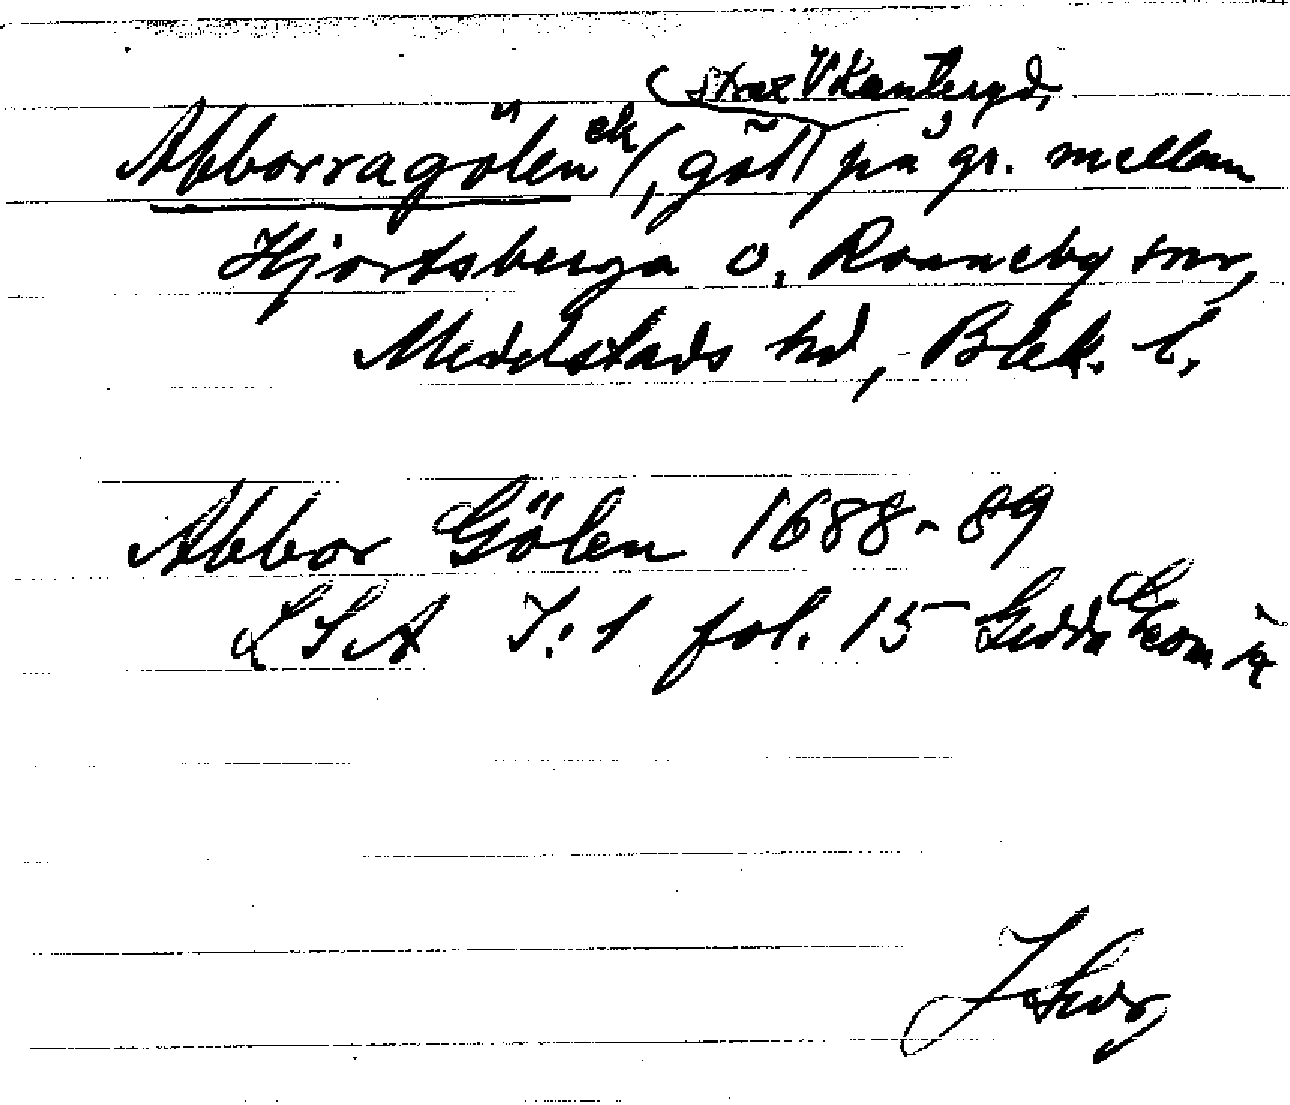 (strax V Kanteryd,
Abborragölen ek/, göl/ på gr. mellan
Hjortsberga o. Ronneby snr,
Medelstads hd, Blek. l.
Abbor Gölen 1688-89
LSA I:1 fol. 15 Gedda Geom